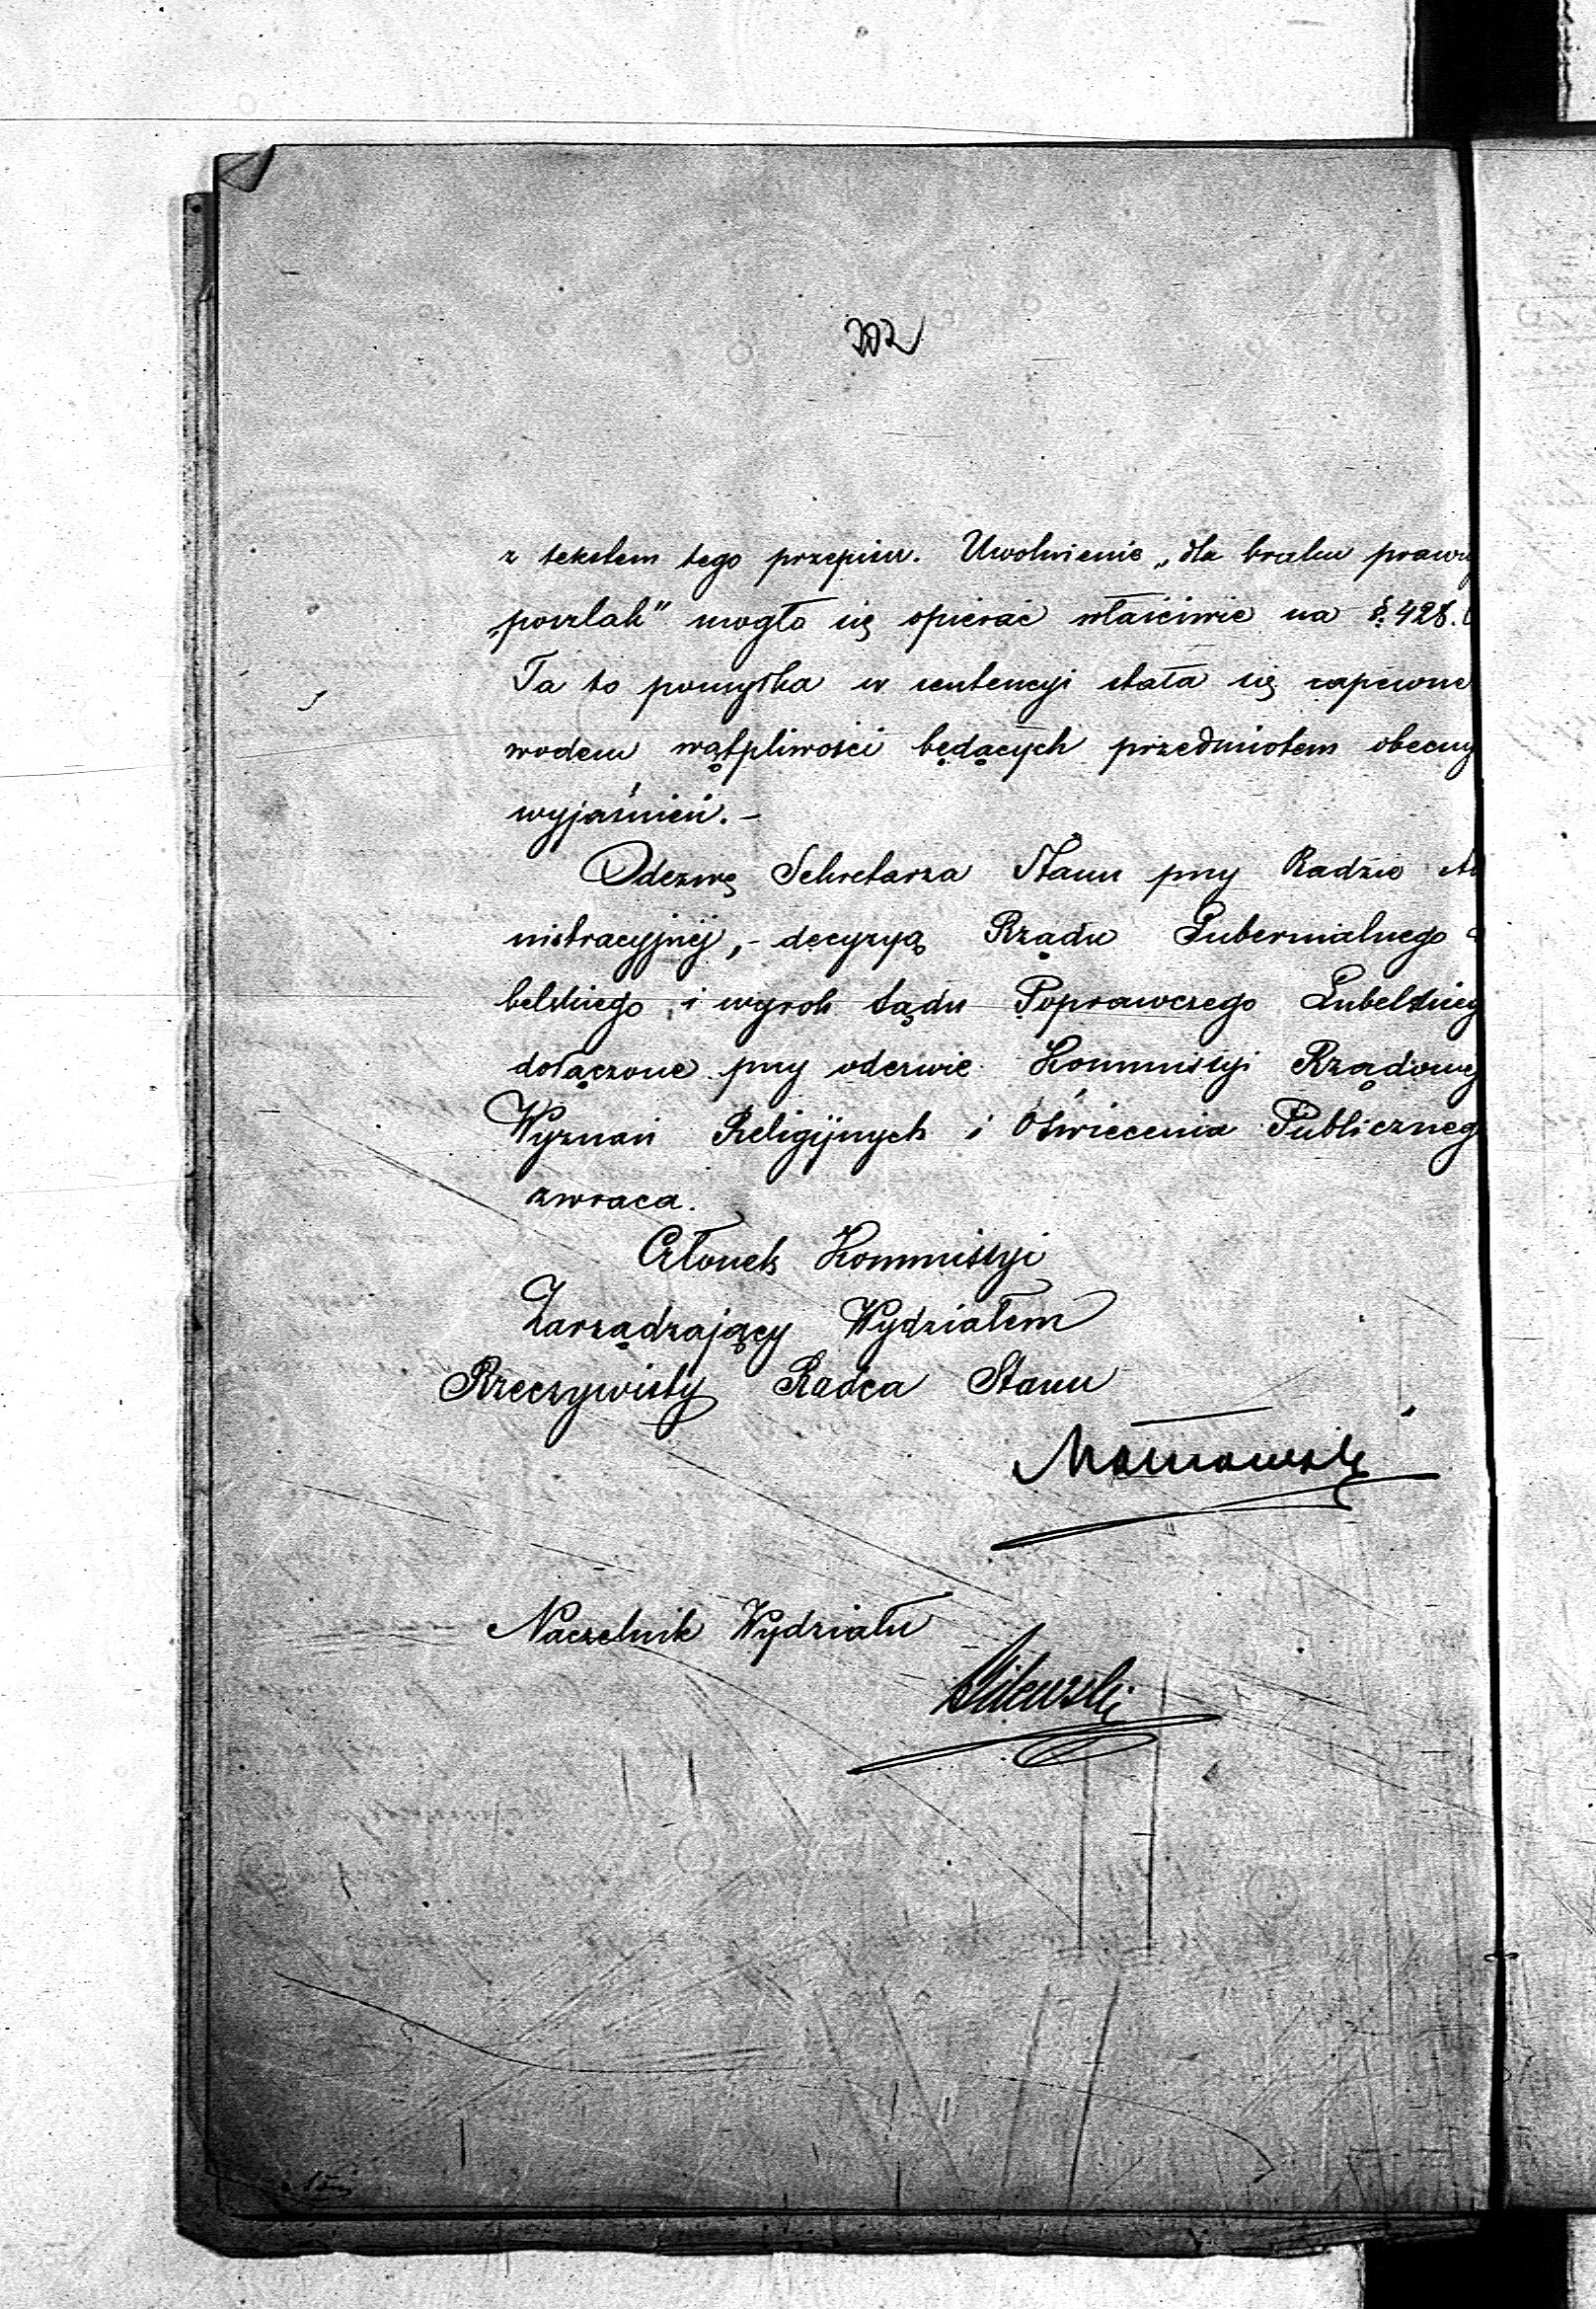 202
z tekstem tego przepisu. Uwolnienie „dla braku prawn
„poszlak" mogło się opierać właściwie na §. 428.
Ta to pomyłka w sentencyi stała się zapewne
wodem wątpliwości będących przedmiotem obecny
wyjaśnień. –
Odezwę Sekretarza Stanu przy Radzie
nistracyjnéj, – decyzyą Rządu Gubernialnego
belskiego i wyrok Sądu Poprawczego Lubelskieg
dołączone przy odezwie Kommissyi Rządowéj
Wyznań Religijnych i Oświecenia Publiczneg
zwraca.
Członek Kommissyi
Zarządzający Wydziałem
Rzeczywisty Radca Stanu
Naczelnik Wydziału